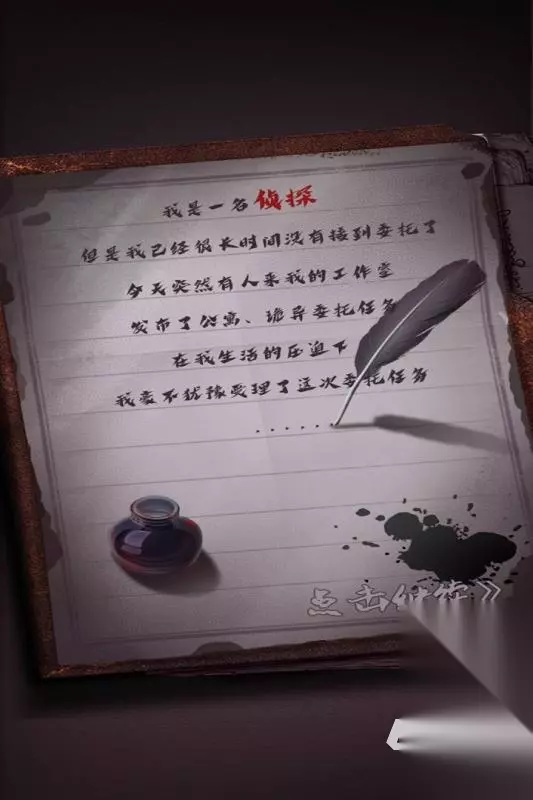 我是一名侦探
但是我已经很长时间没有接到委托了
今天突然有人来我的工作室
发布了公寓、诡异委托任务
在我生活的压迫下
我毫不犹豫受理了这次委托任务
......
点击继续》